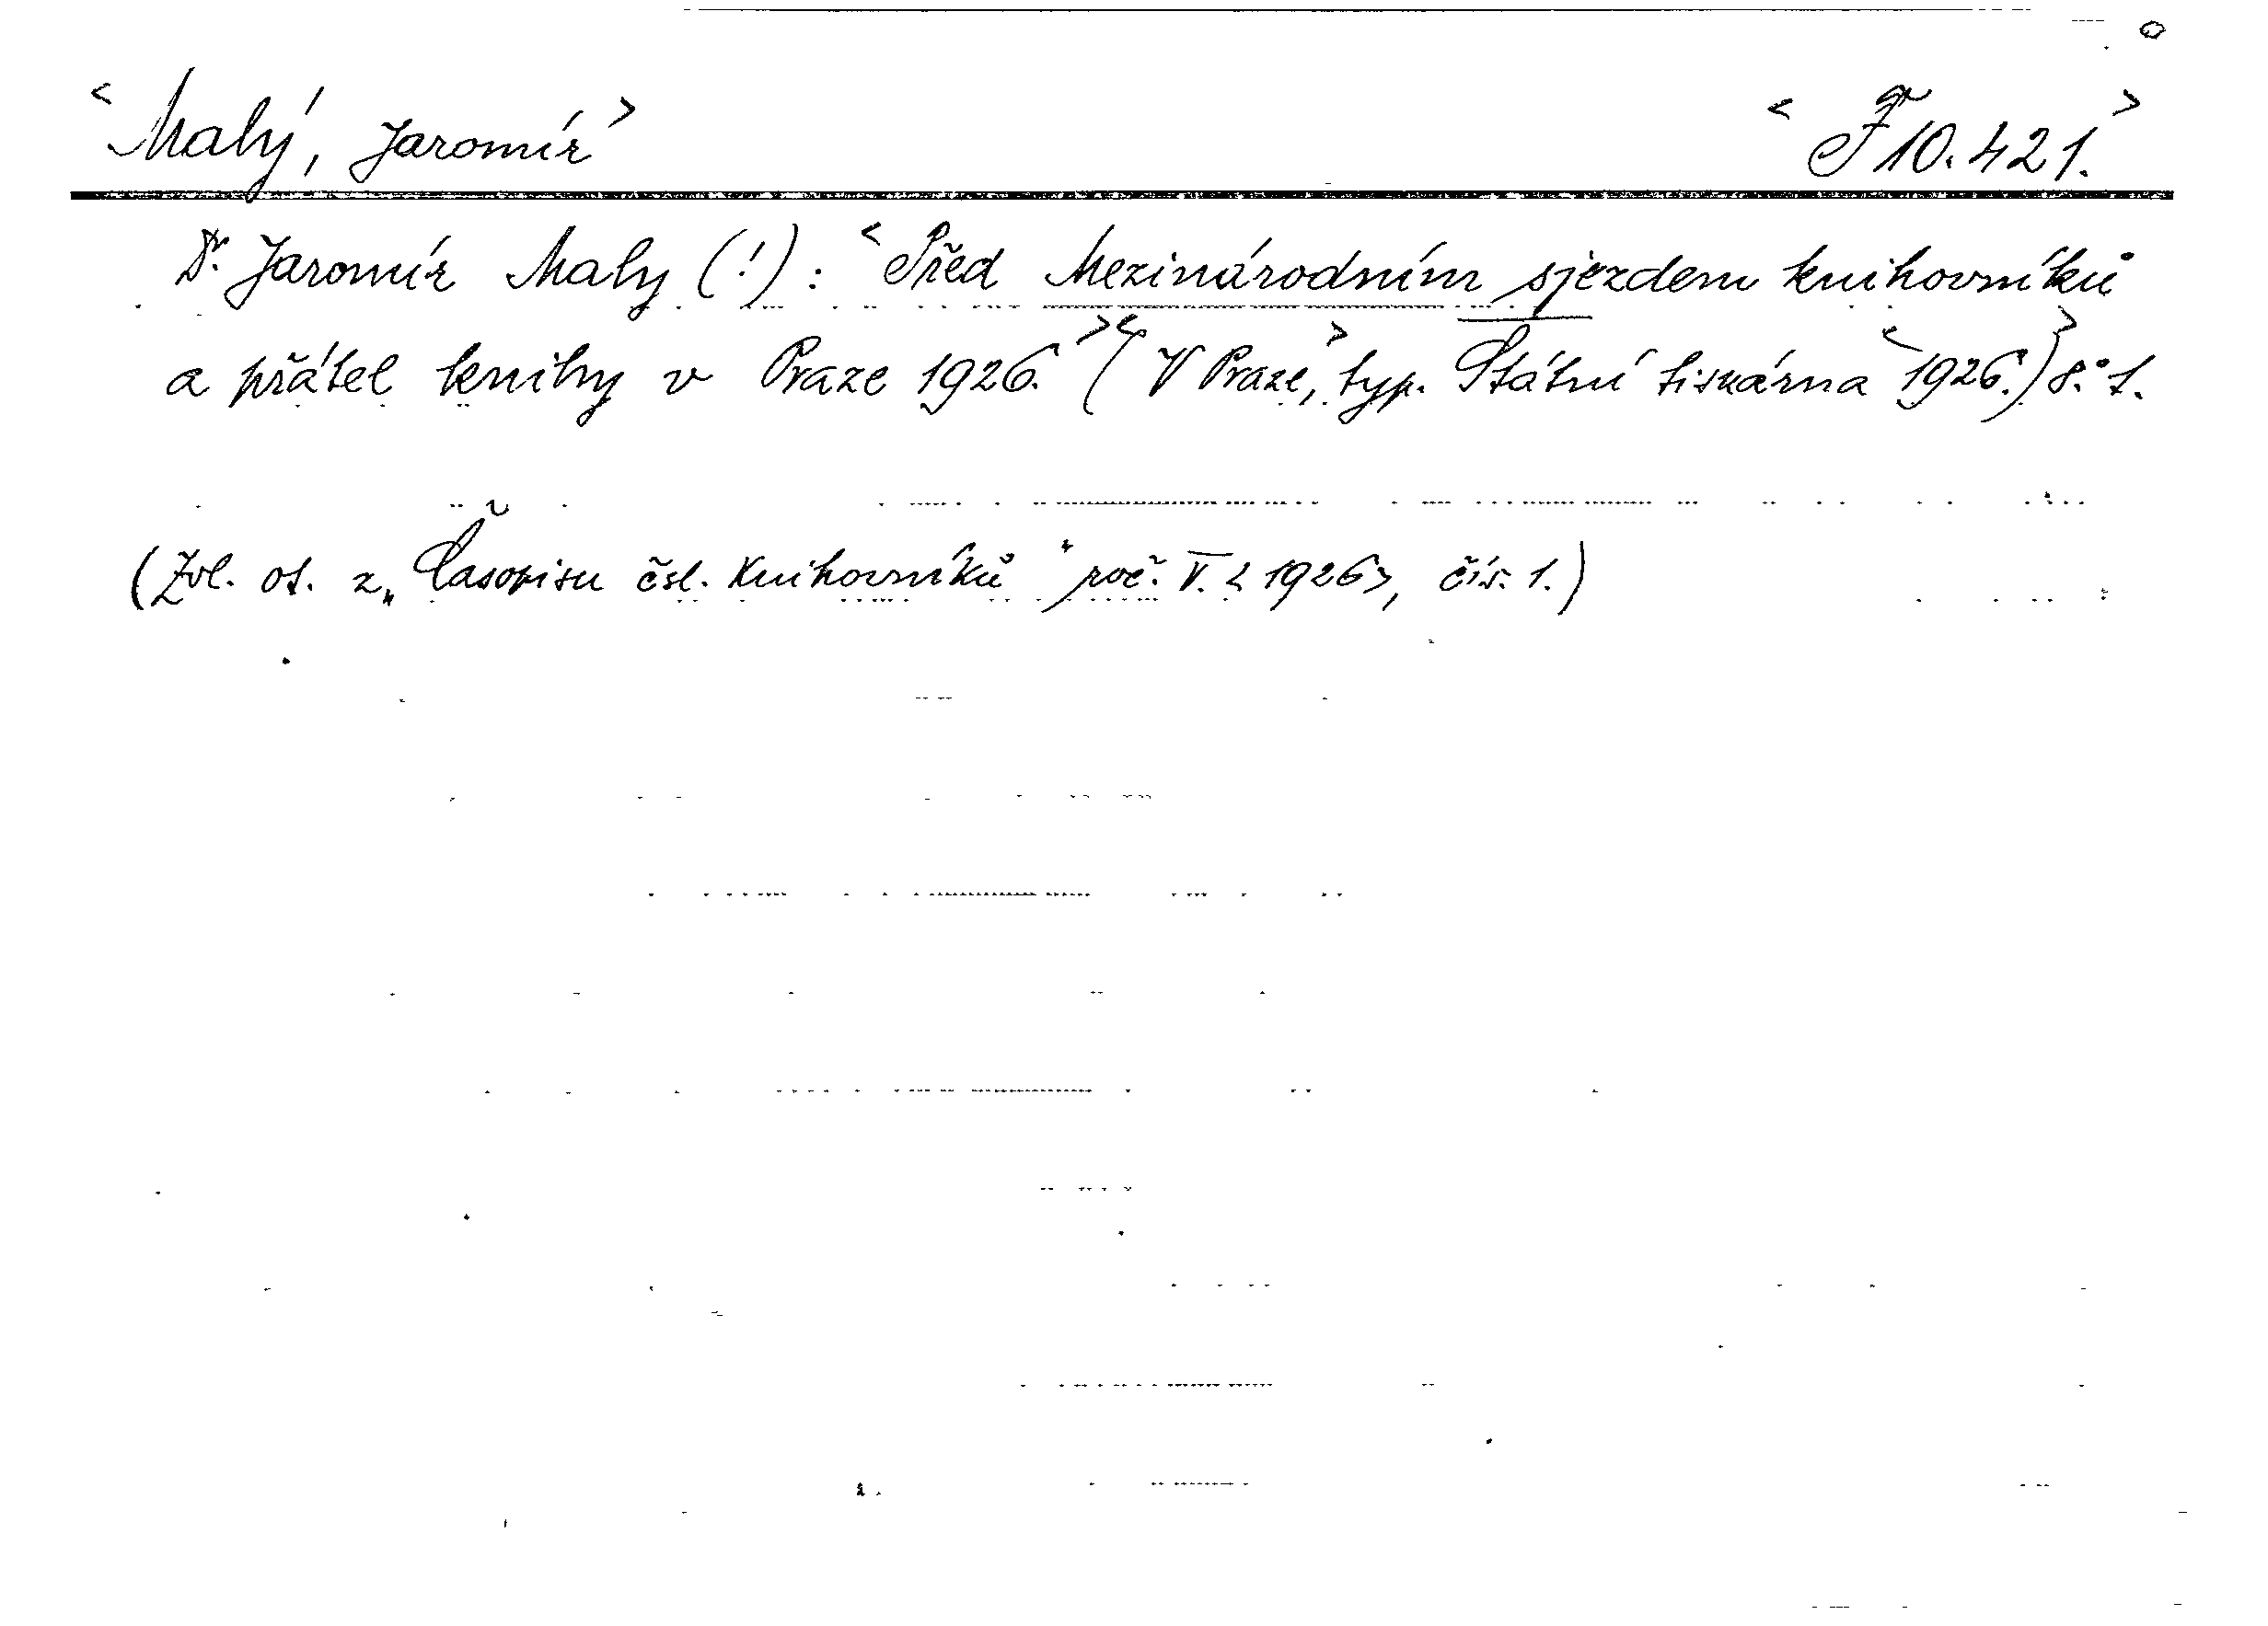 <Malý, Jaromír> <F 10.421.>
Dr. Jaromír Maly (!): <Před Mezinárodním sjezdem knihovníků
a přátel knihy v Praze 1926.> <(V Praze,> typ. Státní tiskárna <1926.)> 8.° 1.
(Zvl. ot. z „Časopisu čsl. knihovníků" roč. V. <1926>, čís. 1.)